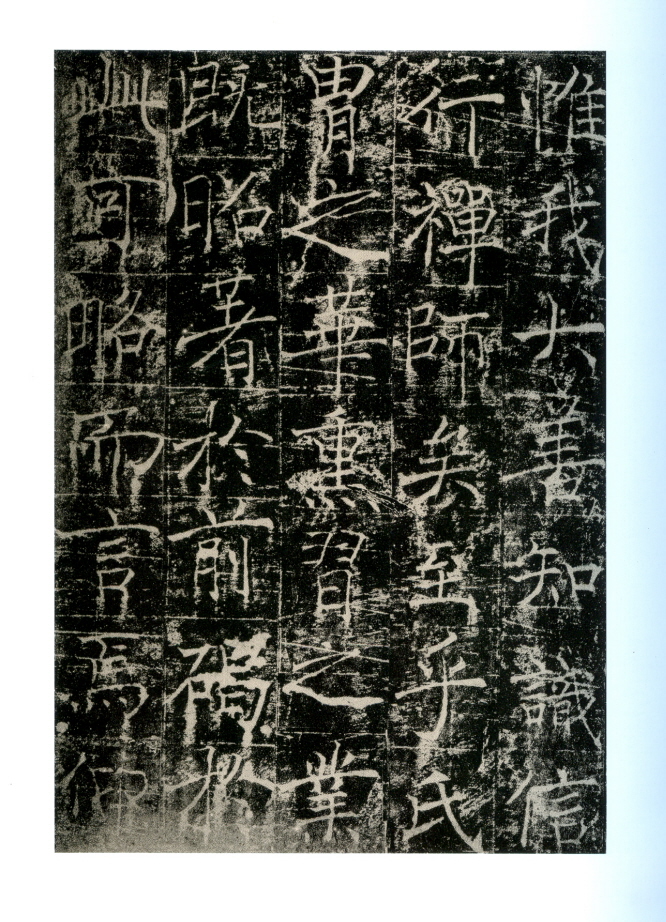 惟我大善知識信
行禪師矣至乎氏
胄之華熏習之業
既昭著於前碣於
此可略而言焉仰